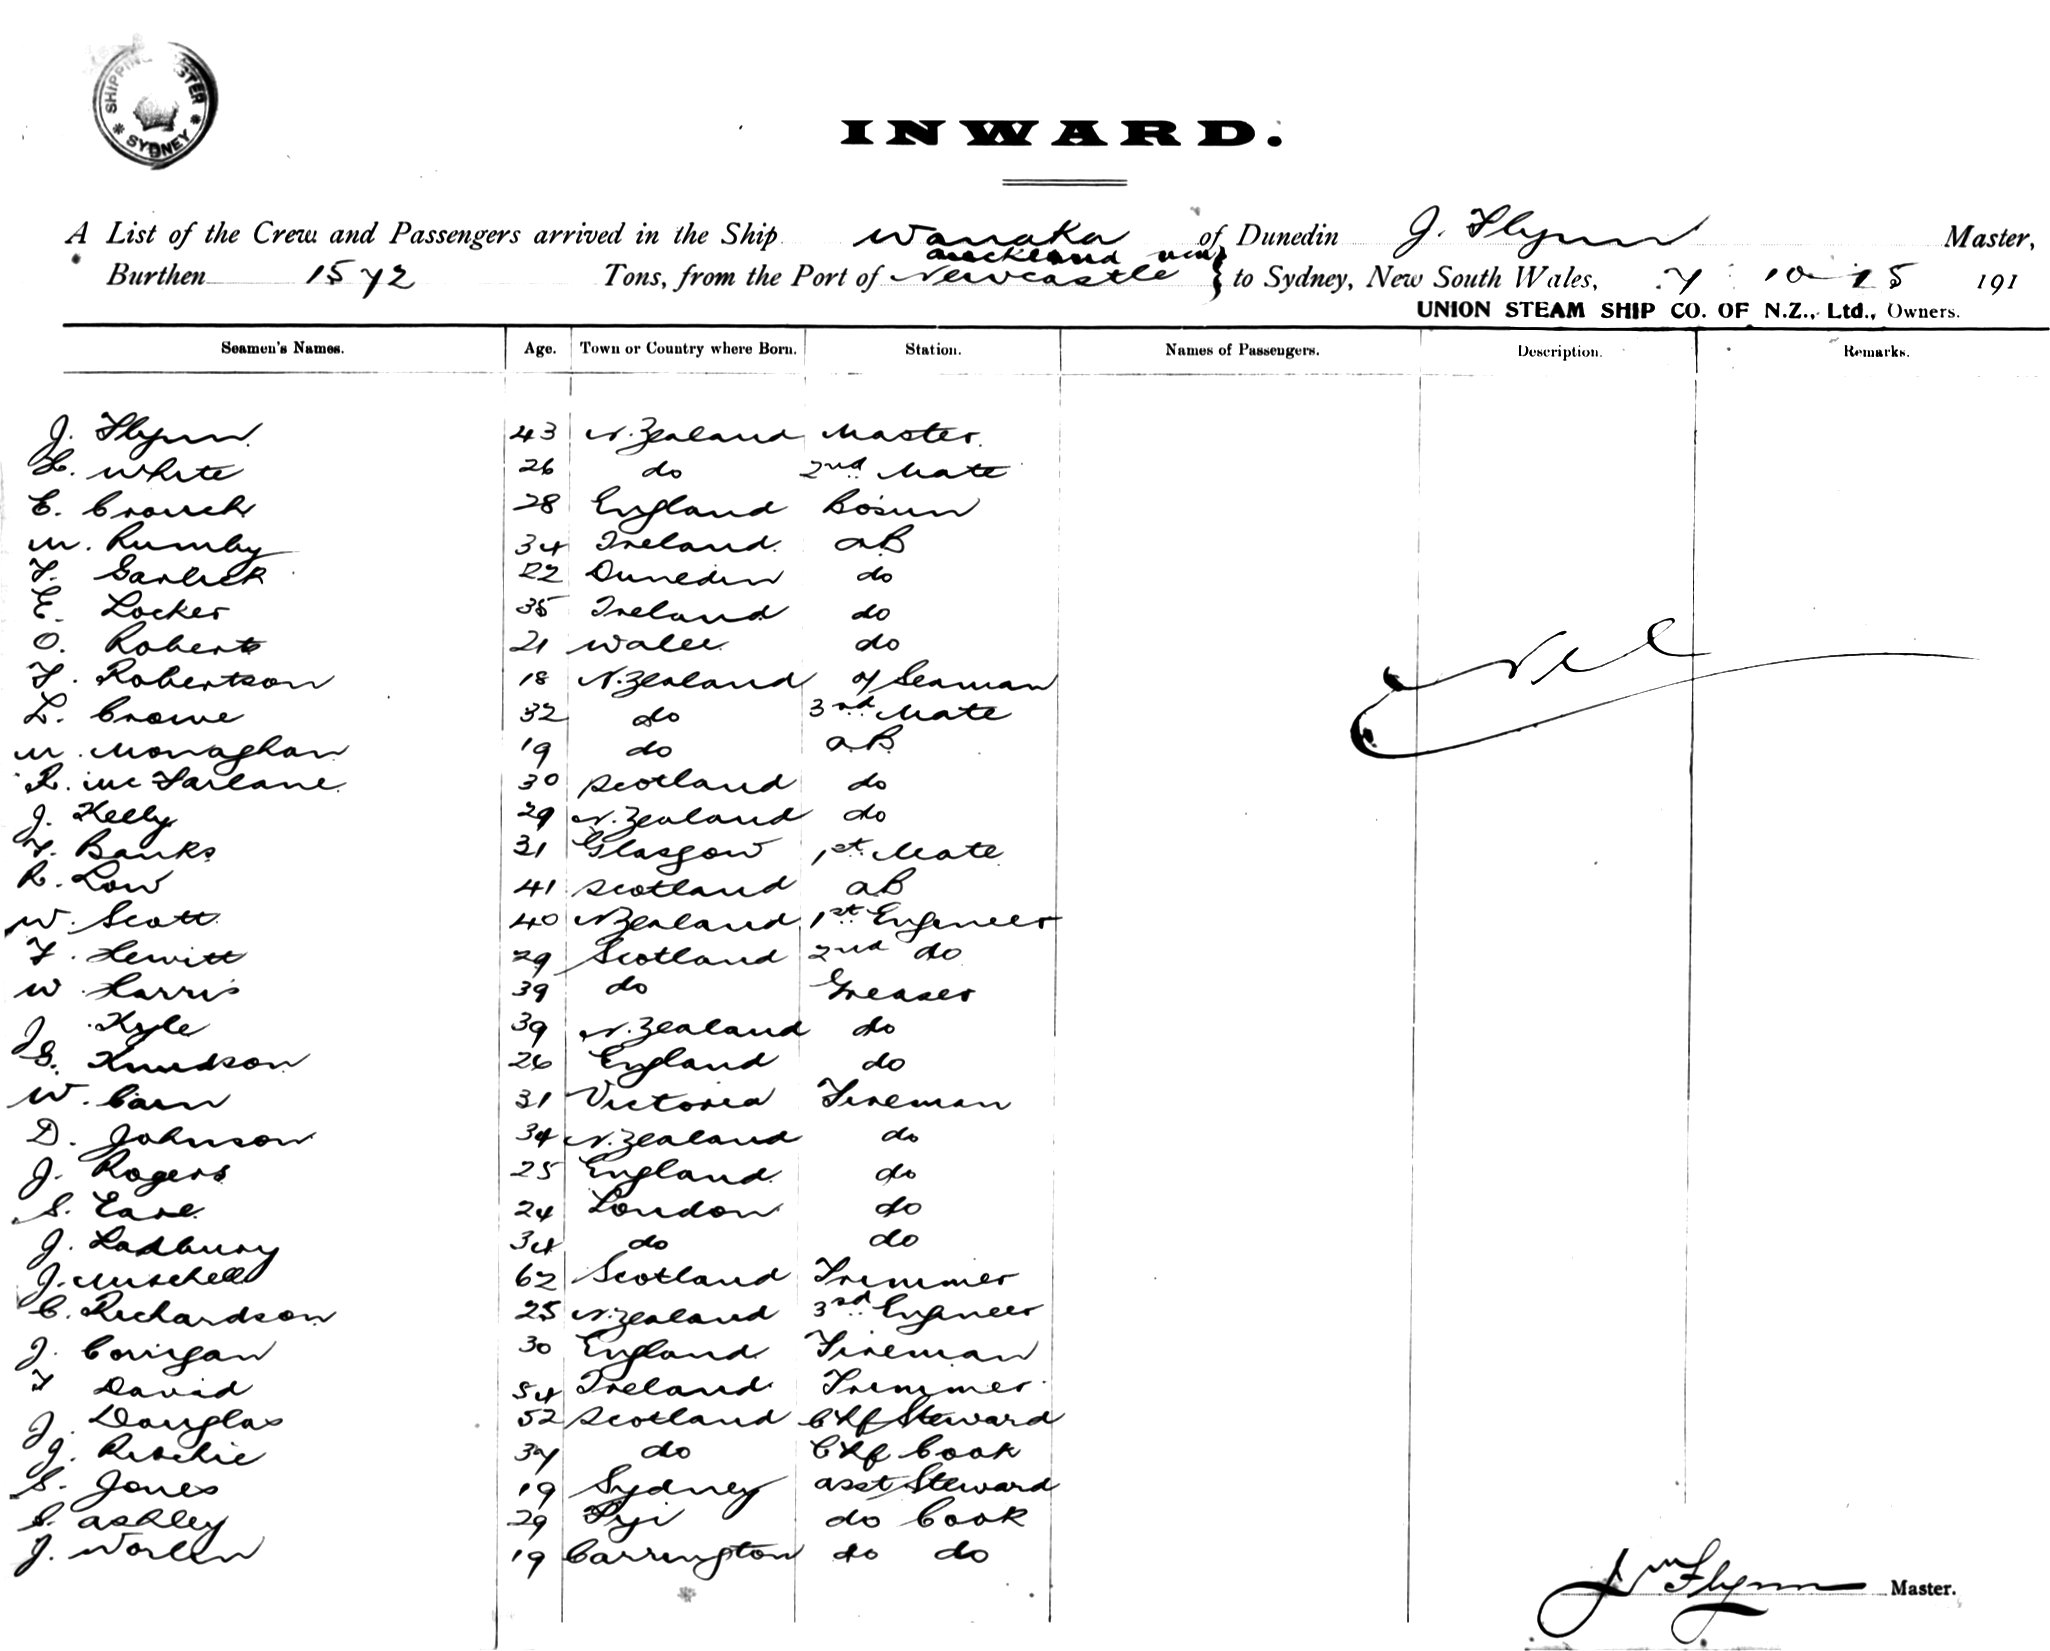 SHIPPING MASTER
SYDNEY
INWARD.
A List of the Crew and Passengers arrived in the Ship Wanaka of Dunedin J. Flynn Master,
Auckland via
Burthen 1572 Tons, from the Port of Newcastle } to Sydney, New South Wales, 7 10 15 191
UNION STEAM SHIP CO. OF N.Z., Ltd., Owners.
Seamen's Names. Age. Town or Country where Born. Station. Names of Passengers. Description. Remarks.
J. Flynn 43 N. Zealand Master
L. White 26 do 2nd Mate
E. Crouch 28 England Bosun
M. Rumby 34 Ireland AB
F. Garlick 22 Dunedin do
E. Locker 35 Ireland do
O. Roberts 21 Wales do
F. Robertson 18 N. Zealand O/Seaman
L. Crowe 32 do 3rd Mate
M. Monaghan 19 do A.B.
R. McFarlane 30 Scotland do
J. Kelly 29 N. Zealand do
F. Banks 31 Glasgow 1st Mate
R. Low 41 Scotland AB
W. Scott 40 N Zealand 1st Engineer
F. Hewitt 29 Scotland 2nd do
W. Harris 39 do Greaser
J. Kyle 39 N. Zealand do
G. Knudson 26 England do
W. Cain 31 Victoria Fireman
D. Johnson 34 N. Zealand do
J. Rogers 25 England do
S. Earl 24 London do
J. Ladbury 34 do do
J. Mitchell 62 Scotland Trimmer
C. Richardson 25 N. Zealand 3rd Engineer
J. Corrigan 30 England Fireman
F David 54 Ireland Trimmer
J. Douglas 52 Scotland Chf Steward
J. Ritchie 37 do Chf Cook
S. Jones 19 Sydney Asst Steward
S. Ashley 29 Fiji do Cook
J. 19 Carrington do do
Nil
Jno Flynn Master.